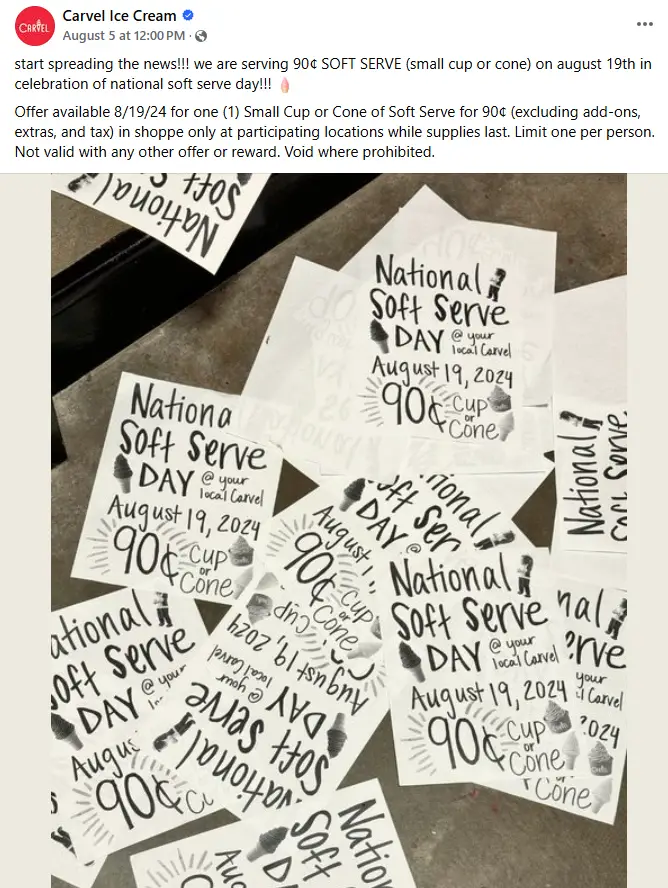 CARVEL
Carvel Ice Cream
August 5 at 12:00 PM ·
start spreading the news!!! we are serving 90¢ SOFT SERVE (small cup or cone) on august 19th in
celebration of national soft serve day!!! 🍦
Offer available 8/19/24 for one (1) Small Cup or Cone of Soft Serve for 90¢ (excluding add-ons,
extras, and tax) in shoppe only at participating locations while supplies last. Limit one per person.
Not valid with any other offer or reward. Void where prohibited.
National
Soft
National
Soft Serve
DAY @ your
local Carvel
August 19, 2024
90¢ Cup
or
Cone
National
Soft Serve
Nationa
Soft Serve
DAY @ your
local Carvel
August 19, 2024
90¢ Cup
or
Cone
tional
oft Ser
DAY @
August 1
90¢ Cup
or
Cone
National
Soft Serve
DAY @ your
local Carvel
August 19, 2024
90¢ Cup
or
Cone
nal
erve
your
l Carvel
2024
Cone
ational
oft Serve
DAY @ your
Augus
90¢ Cu
National
Soft Serve
DAY @ your
local Carvel
August 19, 2024
Cup
Nation
Soft
D
Au